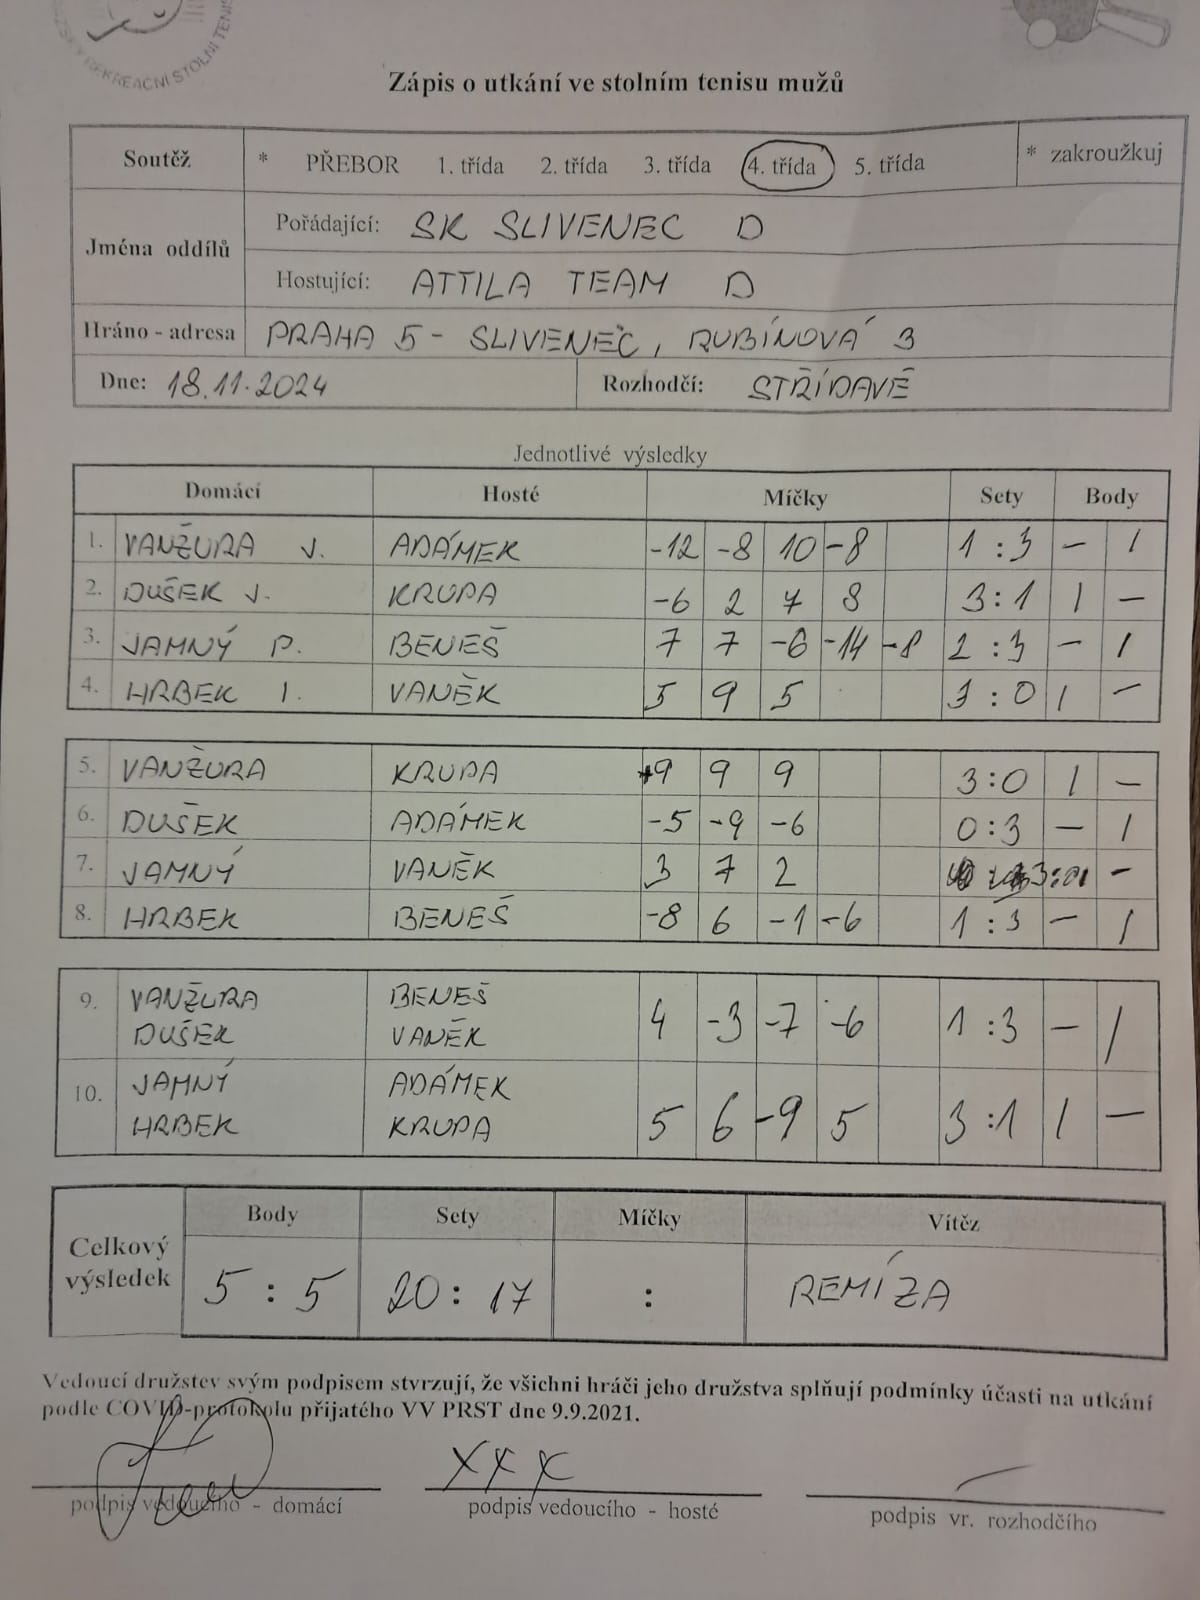 REKREAČNÍ STOLNÍ TENIS
Zápis o utkání ve stolním tenisu mužů
Soutěž * PŘEBOR 1. třída 2. třída 3. třída 4. třída 5. třída * zakroužkuj
Jména oddílů
Pořádající: SK SLIVENEC D
Hostující: ATTILA TEAM D
Hráno - adresa PRAHA 5 - SLIVENEČ, RUBÍNOVÁ 3
Dne: 18.11.2024 Rozhodčí: STŘÍDAVĚ
Jednotlivé výsledky
Domácí Hosté Míčky Sety Body
1. VANŽURA J. ADÁMEK -12 -8 10 -8 1 : 3 - 1
2. DUŠEK J. KRUPA -6 2 7 8 3 : 1 1 -
3. JAMNÝ P. BENEŠ 7 7 -6 -14 -8 2 : 3 - 1
4. HRBEK I. VANĚK 5 9 5 3 : 0 1 -
5. VANŽURA KRUPA +9 9 9 3 : 0 1 -
6. DUŠEK ADÁMEK -5 -9 -6 0 : 3 - 1
7. JAMNÝ VANĚK 3 7 2 3:0 1 -
8. HRBEK BENEŠ -8 6 -1 -6 1 : 3 - 1
9. VANŽURA BENEŠ
DUŠEK VANĚK 4 -3 -7 -6 1 : 3 - 1
10. JAMNÝ ADÁMEK
HRBEK KRUPA 5 6 -9 5 3 : 1 1 -
Celkový výsledek
Body Sety Míčky Vítěz
5 : 5 20 : 17 : REMÍZA
Vedoucí družstev svým podpisem stvrzují, že všichni hráči jeho družstva splňují podmínky účasti na utkání
podle COVID-protokolu přijatého VV PRST dne 9.9.2021.
XXX
podpis vedoucího - domácí podpis vedoucího - hosté podpis vr. rozhodčího